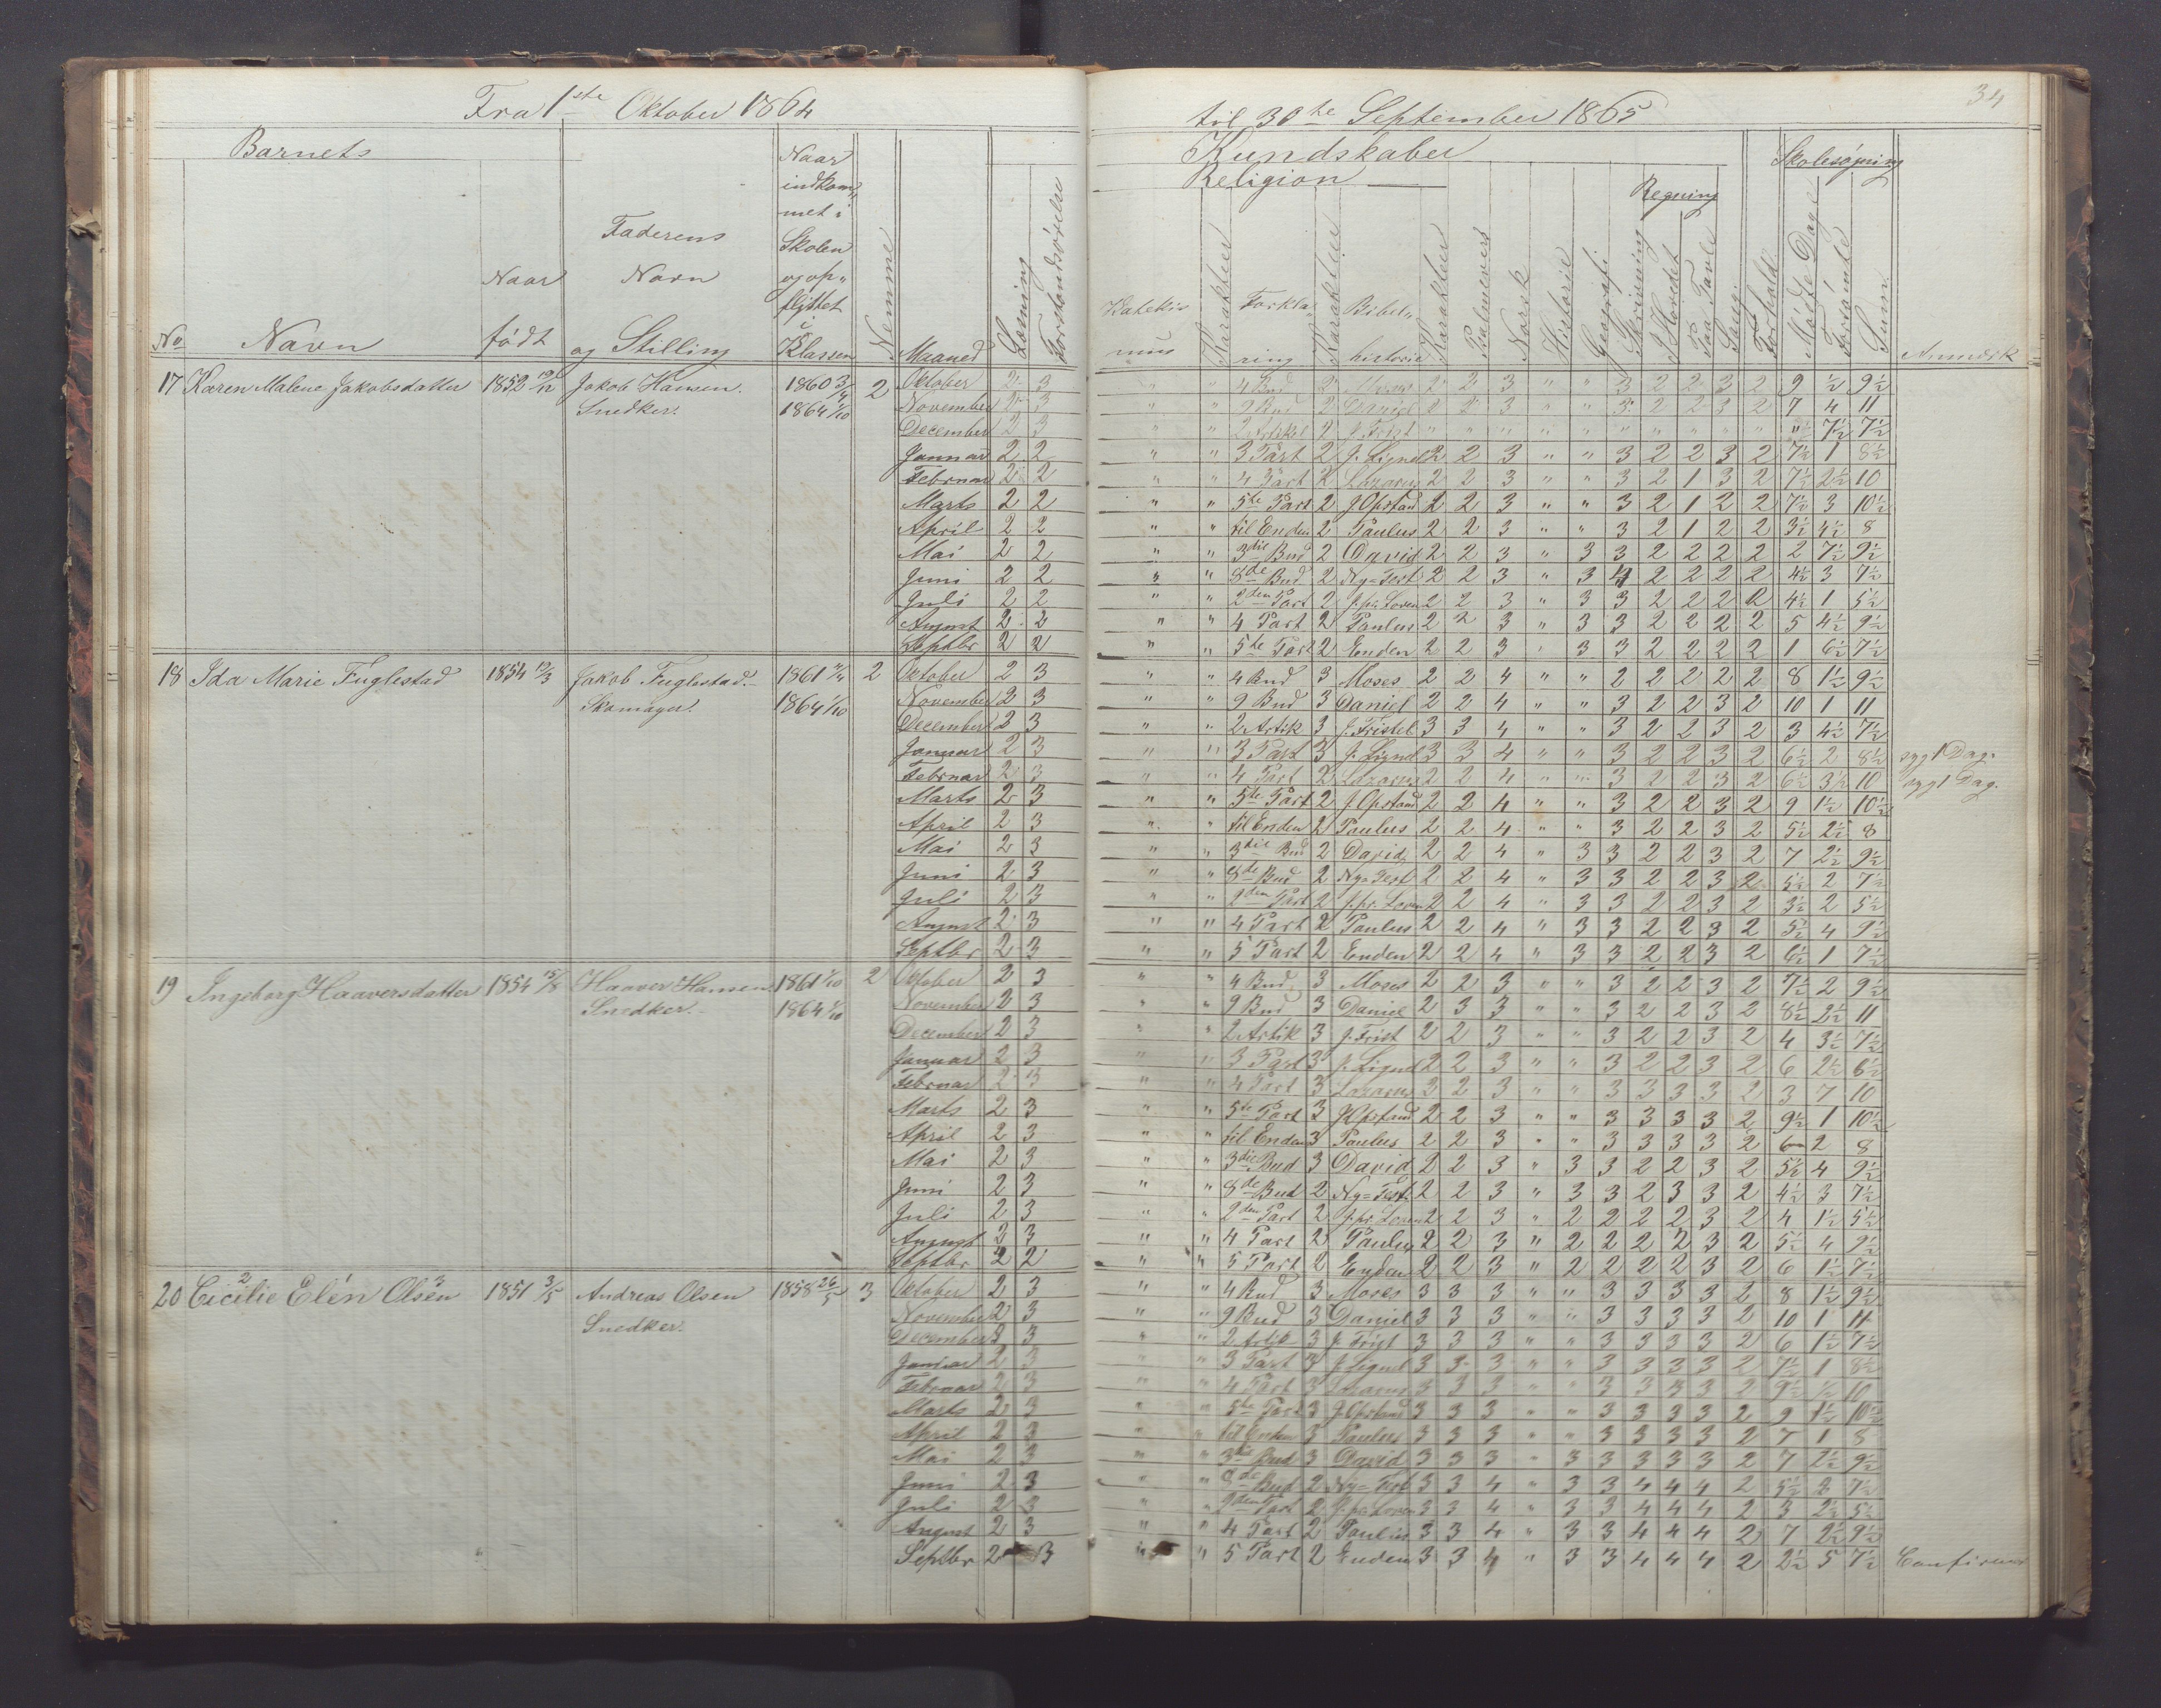 34
Fra 1ste Oktober 1864 til 30te September 1865
Barnets
Kundskaber
Skolesøgning
Religion
Regning
No
Navn
Naar født
Faderens Navn og Stilling
Naar indkommet i Skolen og opflyttet i Klassen
Nemme
Maaned
Læsning
Forstandsøvelse
Katekismus
Karakteer
Forklaring
Karakteer
Bibelhistorie
Karakteer
Psalmevers
Norsk
Historie
Geografi
Skrivning
I Hovedet
Paa Tavle
Sang
Forhold
Mødte Dage
Forsømte
Sum
Anmærk
17 Karen Malene Jakobsdatter 1852 Jakob Hansen. 1860 3/4 2
Snedker. 1864 1/10
Oktober 2 3 " " 4 Bud 2 Moses 2 2 3 " " 3 2 2 3 2 9 ½ 9½
November 2 3 " " 9 Bud 2 Daniel 2 2 3 " " 3 2 2 3 2 7 4 11
December 2 3 " " 2 Artikel 2 J. Frist " " " " " " " " " " " 7½ 7½
Januar 2 2 " " 3 Part 2 J. Lignel 2 2 3 " " 3 2 2 3 2 7½ 1 8½
Februar 2 2 " " 4 Part 2 Lazarus 2 2 3 " " 3 2 1 3 2 7½ 2½ 10
Marts 2 2 " " 5te Part 2 J. Opstand 2 2 3 " " 3 2 1 2 2 7½ 3 10½
April 2 2 " " til Enden 2 Paulus 2 2 3 " " 3 2 1 2 2 3½ 4½ 8
Mai 2 2 " " 3die Bud 2 David 2 2 3 " 3 3 2 2 2 2 2 7½ 9½
Juni 2 2 " " 8de Bud 2 Ny=Test 2 2 3 " 3 4 2 2 2 2 4½ 3 7½
Juli 2 2 " " 2den Part 2 J. pr. Loven 2 2 3 " 3 3 2 2 2 2 4½ 1 5½
August 2 2 " " 4 Part 2 Paulus 2 2 3 " 3 3 2 2 2 2 5 4½ 9½
Septbr 2 2 " " 5te Part 2 Enden 2 2 3 " 3 3 2 2 2 2 1 6½ 7½
18 Ida Marie Fuglestad 1854 Jakob Fuglestad. 1861 2
Skomager. 1864 1/10
Oktober 2 3 " " 4 Bud 3 Moses 2 2 4 " " 2 2 2 2 2 8 1½ 9½
November 2 3 " " 9 Bud 3 Daniel 2 2 4 " " 3 2 2 3 2 10 1 11
December 2 3 " " 2 Artik 3 J. Fristel 3 3 4 " " 3 2 2 3 2 3 4½ 7½
Januar 2 3 " " 3 Part 3 J. Lignel 3 3 4 " " 3 2 2 3 2 6½ 2 8½ syg 1 Dag.
Februar 2 3 " " 4 Part 2 Lazarus 2 2 4 " " 3 2 2 3 2 6½ 3½ 10 syg 1 Dag.
Marts 2 3 " " 5te Part 2 J. Opstand 2 2 4 " " 3 2 2 3 2 9 1½ 10½
April 2 3 " " til Enden 2 Paulus 2 2 4 " " 3 2 2 3 2 5½ 2½ 8
Mai 2 3 " " 3die Bud 2 David 2 2 4 " 3 3 2 2 3 2 7 2½ 9½
Juni 2 3 " " 8de Bud 2 Ny=Test 2 2 4 " 3 3 2 2 3 2 5½ 2 7½
Juli 2 3 " " 2den Part 2 J. pr. Loven 2 2 4 " 3 3 2 2 3 2 3½ 2 5½
August 2 3 " " 4 Part 2 Paulus 2 2 4 " 3 3 2 2 3 2 5½ 4 9½
Septbr 2 3 " " 5 Part 2 Enden 2 2 4 " 3 3 2 2 3 2 6½ 1 7½
19 Ingeborg Haaversdatter 1854 15/8 Haaver Hansen 1861 1/10 2
Snedker. 1864 1/10
Oktober 2 3 " " 4 Bud 3 Moses 2 2 3 " " 3 2 2 3 2 7½ 2 9½
November 2 3 " " 9 Bud 3 Daniel 2 3 3 " " 3 2 2 3 2 8½ 2½ 11
December 2 3 " " 2 Artik 3 J. Frist 2 2 3 " " 3 2 2 3 2 4 3½ 7½
Januar 2 3 " " 3 Part 3 J. Lignel 2 2 3 " " 3 2 2 3 2 6 2½ 8½
Februar 2 3 " " 4 Part 3 Lazarus 3 2 3 " " 3 3 3 3 2 3 7 10
Marts 2 3 " " 5te Part 3 J. Opstand 2 2 3 " " 3 3 3 3 2 9½ 1 10½
April 2 3 " " til Enden 3 Paulus 2 2 3 " " 3 3 3 3 2 6 2 8
Mai 2 3 " " 3die Bud 3 David 2 2 3 " 3 3 2 2 3 2 5½ 4 9½
Juni 2 3 " " 8de Bud 2 Ny=Test. 2 2 3 " 3 3 2 3 3 2 4½ 3 7½
Juli 2 3 " " 2den Part 2 J. pr. Loven 2 2 3 " 2 2 2 2 3 2 4 1½ 5½
August 2 3 " " 4 Part 2 Paulus 2 2 3 " 2 2 2 2 3 2 5½ 4 9½
Septbr 2 2 " " 5 Part 2 Enden 2 2 3 " 2 2 2 2 3 2 6 1½ 7½
20 Cicilie Elén Olsen 1851 3/5 Andreas Olsen 1858 26/5 3
Snedker.
Oktober 2 3 " " 4 Bud 3 Moses 3 3 3 " " 3 3 3 3 2 8 1½ 9½
November 2 3 " " 9 Bud 3 Daniel 3 3 3 " " 3 3 3 3 2 10 1 11
December 2 3 " " 2 Artik 3 J. Frist 3 3 3 " " 3 3 3 3 2 6 1½ 7½
Januar 2 3 " " 3 Part 3 J. Lignel 3 3 3 " " 3 3 3 3 2 7½ 1 8½
Februar 2 3 " " 4 Part 3 Lazarus 3 3 3 " " 3 3 3 3 2 9½ ½ 10
Marts 2 3 " " 5te Part 3 J. Opstand 3 3 3 " " 3 3 3 3 2 9 1½ 10½
April 2 3 " " til Enden 3 Paulus 3 3 3 " " 3 3 3 3 2 7 1 8
Mai 2 3 " " 3die Bud 3 David 3 3 3 " 3 3 3 3 3 2 7 2½ 9½
Juni 2 3 " " 8de Bud 2 Ny=Test 3 3 4 " 3 3 4 4 4 2 5½ 2 7½
Juli 2 3 " " 2den Part 2 J. pr. Loven 3 3 4 " 3 3 4 4 4 2 3 2½ 5½
August 2 3 " " 4 Part 2 Paulus 3 3 4 " 3 3 4 4 4 2 7 2½ 9½
Septbr 2 3 " " 5 Part 2 Enden 3 3 4 " 3 3 4 4 4 2 2½ 5 7½